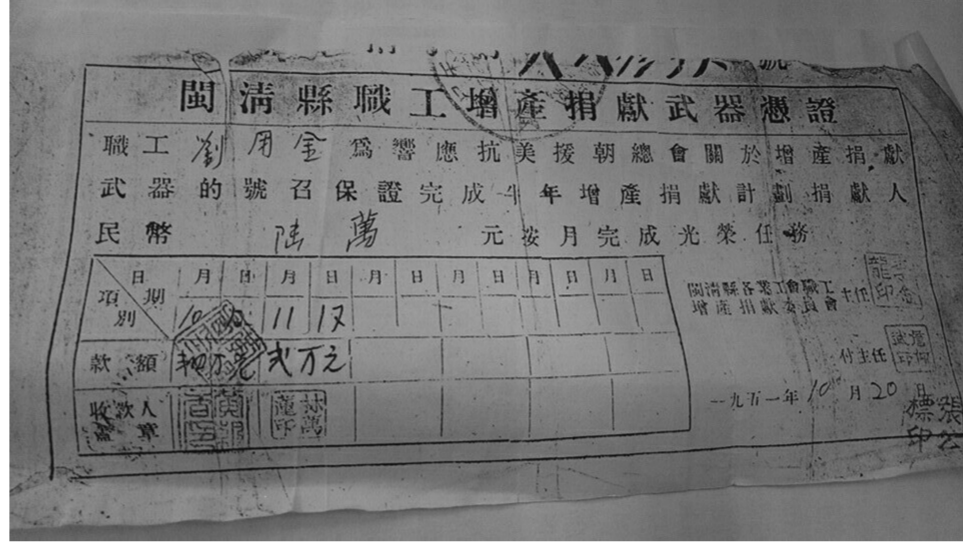 號
閩清縣職工增產捐獻武器憑證
職工 劉用金 為響應抗美援朝總會關於增產捐獻
武器的號召保證完成半年增產捐獻計劃捐獻人
民幣 陆萬 元按月完成光榮任務
日期 項別 月 日 月 日 月 日 月 日 月 日 月 日
10 11 17
款額 肆万元 弍万元
收款人蓋章 林萬蓮印
閩清縣各業工會職工
增產捐獻委員會 主任
付主任
一九五一年 10 月 20 日
張公標印